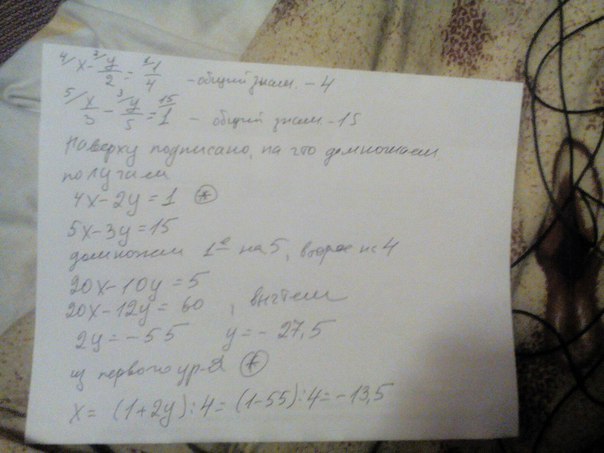 4/ x - 2/ y/2 = 1/ 1/4 - общий знам. - 4
5/ x/3 - 3/ y/5 = 15/ 1 - общий знам - 15
Наверху подписано, на что домножаем
получим
4x - 2y = 1 (*)
5x - 3y = 15
домножим 1е на 5, второе на 4
20x - 10y = 5
20x - 12y = 60 , вычтем
2y = - 55 y = - 27,5
из первого ур-я (*)
x = (1 + 2y) : 4 = (1 - 55) : 4 = - 13,5